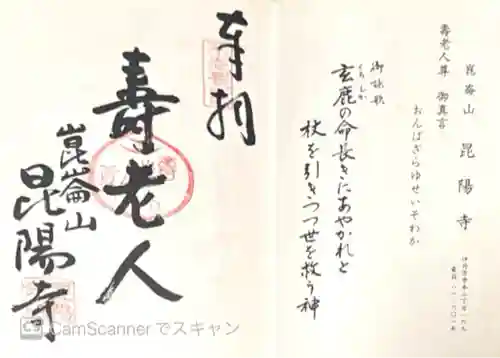 奉拝
壽老人
崑崙山
昆陽寺
崑崙山 昆陽寺
壽老人尊 御真言
おんばざらゆせいそわか
御詠歌
玄鹿の命長きにあやかれと
くろしか
杖を引きつつ世を救う神
CamScannerでスキャン